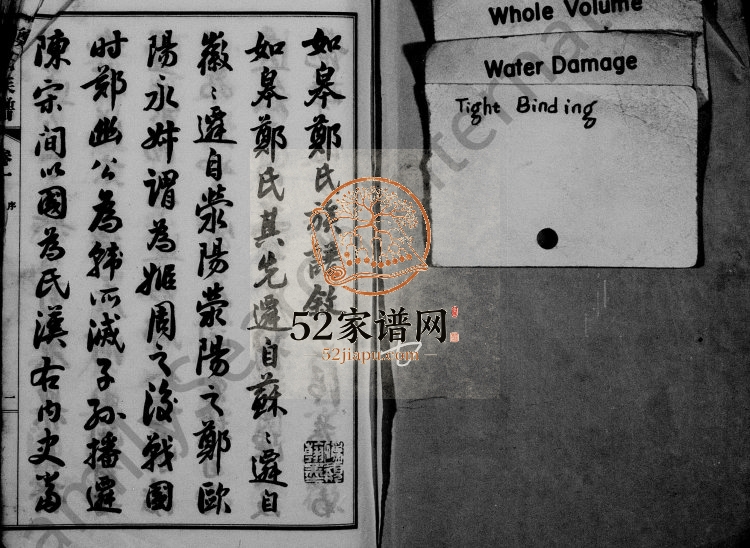 如皋鄭氏族譜敘
如皋鄭氏其先遷自蘇〻遷自
徽〻遷自滎陽滎陽之鄭歐
陽永叔謂為姬周之後戰國
时鄭幽公為韩所滅子孙播遷
陳宋间以國為氏漢右内史當
卷一
序
Whole Volume
Water Damage
Tight Binding
52家谱网
52jiapu.com